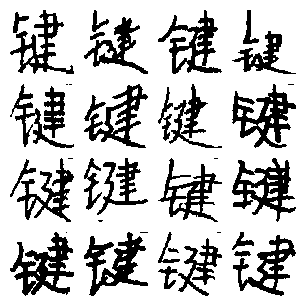 键键键键
键键键键
键键键键
键键键键